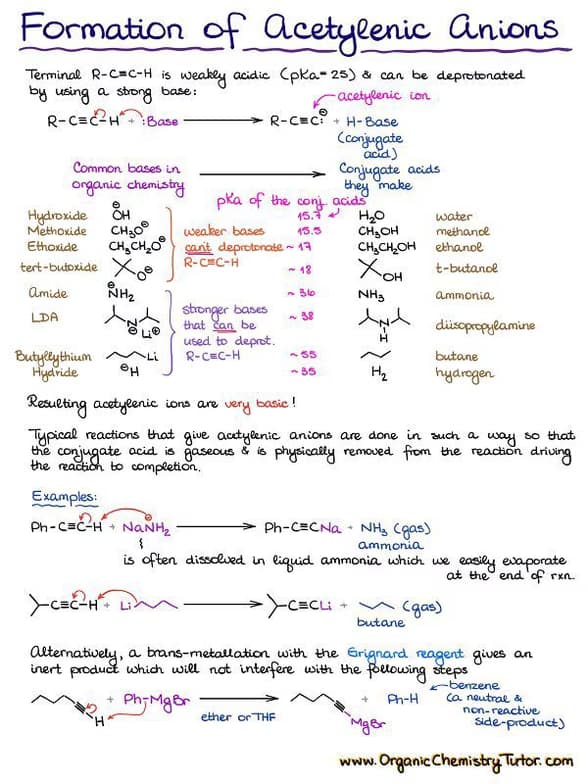 Formation of Acetylenic Anions
Terminal R-C≡C-H is weakly acidic (pKa= 25) & can be deprotonated
by using a strong base:
acetylenic ion
R-C≡C-H + :Base → R-C≡C:⊖ + H-Base
(conjugate
acid)
Common bases in
organic chemistry
→
Conjugate acids
they make
pKa of the conj. acids
Hydroxide ⊖OH 15.7 H₂O water
Methoxide CH₃O⊖ weaker bases 15.5 CH₃OH methanol
Ethoxide CH₃CH₂O⊖ can't deprotonate ~ 17 CH₃CH₂OH ethanol
R-C≡C-H
tert-butoxide O⊖ ~ 18 OH t-butanol
Amide ⊖NH₂ ~ 36 NH₃ ammonia
LDA N⊖ Li⊕ stronger bases ~ 38 N H diisopropylamine
that can be
used to deprot.
Butyllythium Li R-C≡C-H ~55 butane
Hydride ⊖H ~35 H₂ hydrogen
Resulting acetylenic ions are very basic!
Typical reactions that give acetylenic anions are done in such a way so that
the conjugate acid is gaseous & is physically removed from the reaction driving
the reaction to completion.
Examples:
Ph-C≡C-H + NaNH₂ → Ph-C≡CNa + NH₃ (gas)
ammonia
is often dissolved in liquid ammonia which we easily evaporate
at the end of rxn.
-C≡C-H + Li → -C≡CLi + (gas)
butane
Alternatively, a trans-metallation with the Grignard reagent gives an
inert product which will not interfere with the following steps
H + Ph-MgBr → MgBr + Ph-H
ether or THF
benzene
(a neutral &
non-reactive
side-product)
www.OrganicChemistryTutor.com